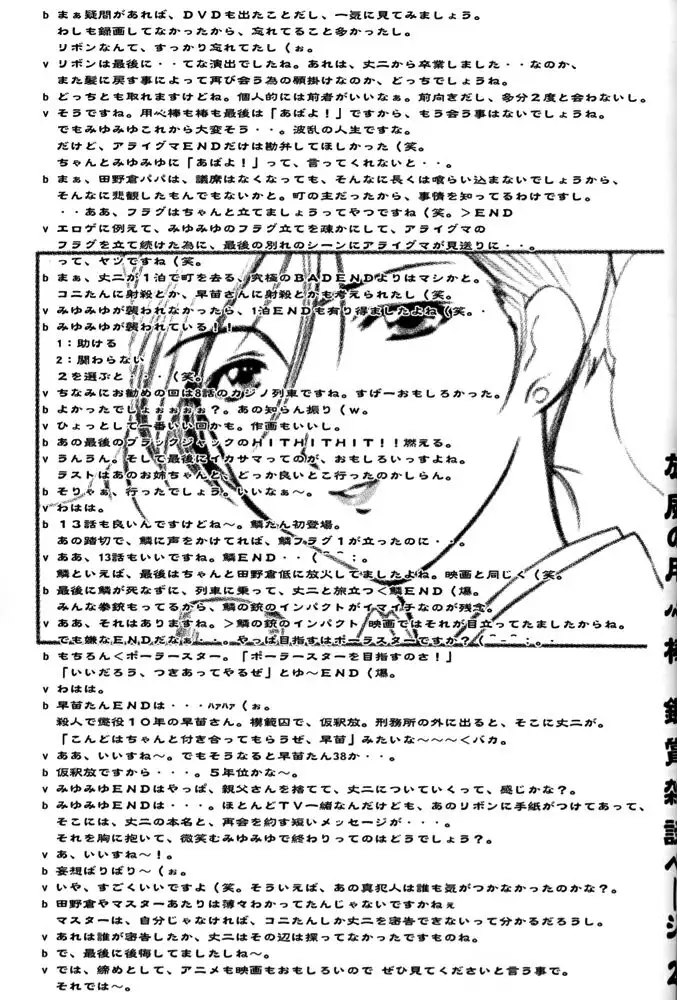 b まぁ疑問があれば、ＤＶＤも出たことだし、一気に見てみましょう。
わしも録画してなかったから、忘れてること多かったし。
リボンなんて、すっかり忘れてたし（ぉ。
v リボンは最後に・・てな演出でしたね。あれは、丈二から卒業しました・・なのか、
また髪に戻す事によって再び会う為の願掛けなのか、どっちでしょうね。
b どっちとも取れますけどね。個人的には前者がいいなぁ。前向きだし、多分２度と会わないし。
v そうですね。用心棒も椿も最後は「あばよ！」ですから、もう会う事はないでしょうね。
でもみゆみゆこれから大変そう・・。波乱の人生ですな。
だけど、アライグマＥＮＤだけは勘弁してほしかった（笑。
ちゃんとみゆみゆに「あばよ！」って、言ってくれないと・・。
b まぁ、田野倉パパは、議席はなくなっても、そんなに長くは喰らい込まないでしょうから、
そんなに悲観したもんでもないかと。町の主だったから、事情を知ってるわけですし。
・・ああ、フラグはちゃんと立てましょうってやつですね（笑。＞ＥＮＤ
v エロゲに例えて、みゆみゆのフラグ立てを疎かにして、アライグマの
フラグを立て続けた為に、最後の別れのシーンにアライグマが見送りに・・。
って、ヤツですね（笑。
b まぁ、丈二が１泊で町を去る、究極のＢＡＤＥＮＤよりはマシかと。
コニたんに射殺とか、早苗さんに射殺とかも考えられたし（笑。
v みゆみゆが襲われなかったら、１泊ＥＮＤも有り得ましたよね（笑。・
b みゆみゆが襲われている！！
１：助ける
２：関わらない
２を選ぶと・・・（笑。
v ちなみにお勧めの回は8話のカジノ列車ですね。すげーおもしろかった。
b よかったでしょぉぉぉぉ？。あの知らん振り（ｗ。
v ひょっとして一番いい回かも。作画もいいし。
b あの最後のブラックジャックのＨＩＴＨＩＴＨＩＴ！！燃える。
v うんうん。そして最後にイカサマってのが、おもしろいっすよね。
ラストはあのお姉ちゃんと、どっか良いとこ行ったのかしらん。
b そりゃぁ、行ったでしょう。いいなぁ〜。
v わはは。
b １３話も良いんですけどね〜。鱗たん初登場。
あの踏切で、鱗に声をかけてれば、鱗フラグ１が立ったのに・・。
v ああ、13話もいいですね。鱗ＥＮＤ・・（⌒⌒；。
鱗といえば、最後はちゃんと田野倉低に放火してましたよね。映画と同じく（笑。
b 最後に鱗が死なずに、列車に乗って、丈二と旅立つく鱗ＥＮＤ（爆。
みんな拳銃もってるから、鱗の銃のインパクトがイマイチなのが残念。
v ああ、それはありますね。＞鱗の銃のインパクト 映画ではそれが目立ってたましたからね。
でも嫌なＥＮＤだなぁ・・。やっぱ目指すはポーラスターですか？（⌒⌒；。
b もちろん＜ポーラースター。「ポーラースターを目指すのさ！」
「いいだろう、つきあってやるぜ」とゆ〜ＥＮＤ（爆。
v わはは。
b 早苗たんＥＮＤは、・・・ﾊｧﾊｧ（ぉ。
殺人で懲役１０年の早苗さん。模範囚で、仮釈放。刑務所の外に出ると、そこに丈二が。
「こんどはちゃんと付き合ってもらうぜ、早苗」みたいな〜〜〜＜バカ。
v ああ、いいすね〜。でもそうなると早苗たん38か・・。
b 仮釈放ですから・・・。５年位かな〜。
v みゆみゆＥＮＤはやっぱ、親父さんを捨てて、丈二についていくって、感じかな？。
b みゆみゆＥＮＤは・・・。ほとんどＴＶ一緒なんだけども、あのリボンに手紙がつけてあって、
そこには、丈二の本名と、再会を約す短いメッセージが・・・。
それを胸に抱いて、微笑むみゆみゆで終わりってのはどうでしょう？。
v あ、いいすね〜！。
b 妄想ばりばり〜（ぉ。
v いや、すごくいいですよ（笑。そういえば、あの真犯人は誰も気がつかなかったのかな？。
b 田野倉やマスターあたりは薄々わかってたんじゃないですかねぇ
マスターは、自分じゃなければ、コニたんしか丈二を密告できないって分かるだろうし。
v あれは誰が密告したか、丈二はその辺は探ってなかったですものね。
b で、最後に後悔してましたしね〜。
v では、締めとして、アニメも映画もおもしろいので ぜひ見てくださいと言う事で。
それでは〜。
旅風の用心棒 鑑賞雑談ページ２